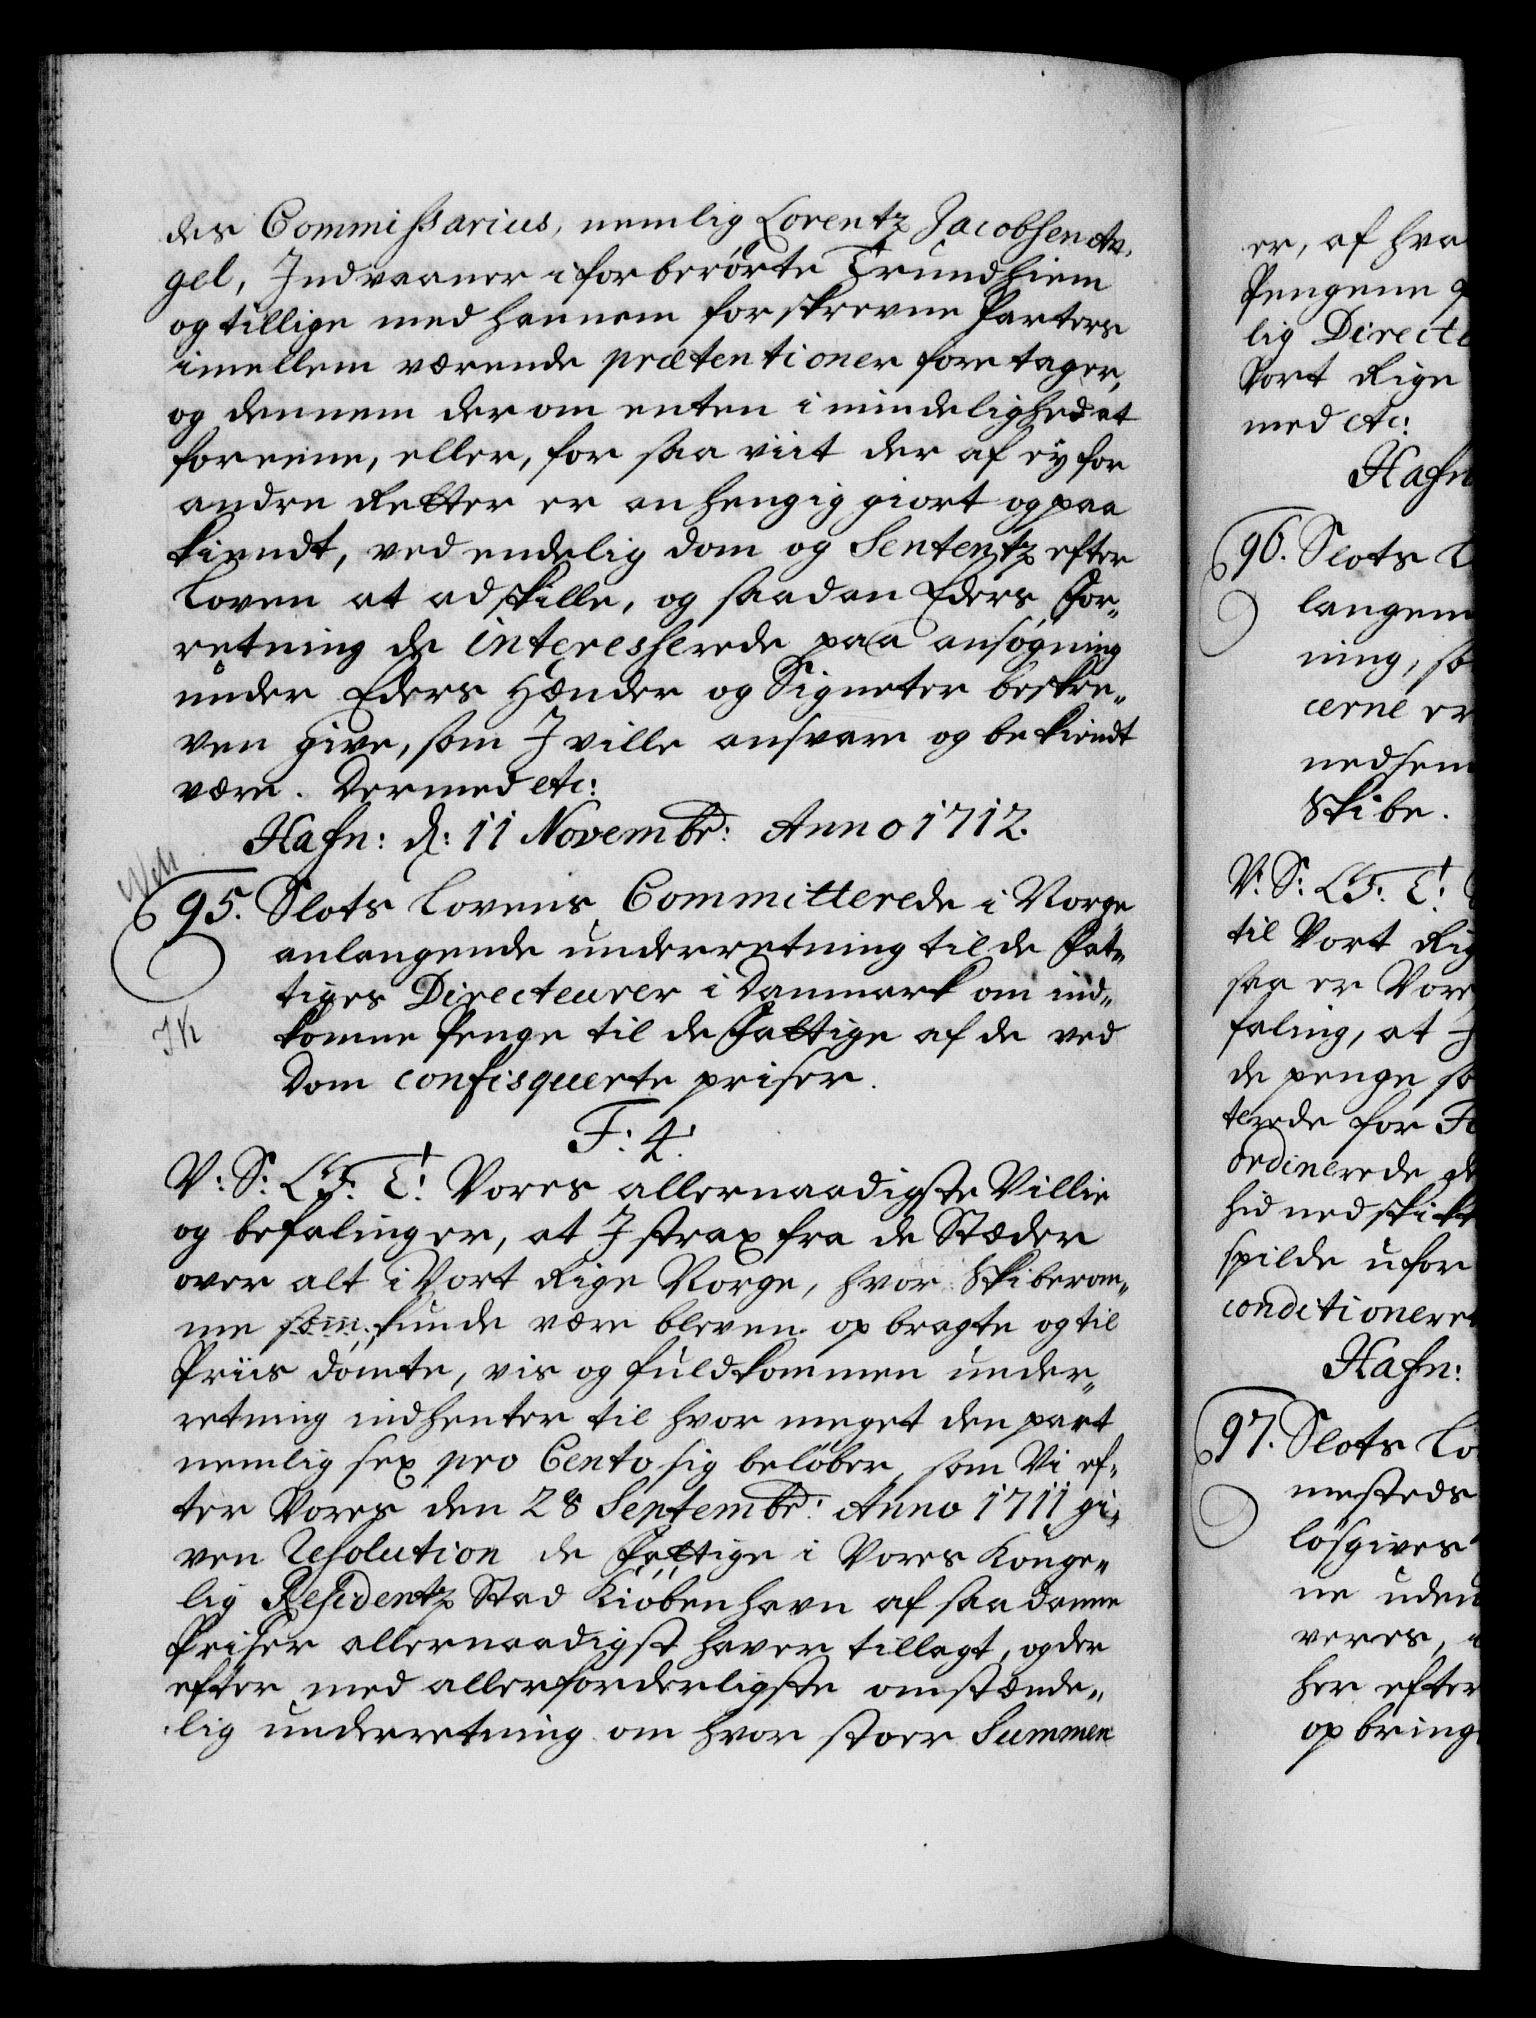 des Commissarius, nemlig Lorentz Jacobsen An,
gel, Indvaaner i forberørte Trundhiem
og tillige med hannem forskrevne Parters
imellem værende prætentioner foretager,
og dennem derom enten i mindelighed at
foreene, eller, for saa viit der af ey for
andre Retter er anhengig giort og paa
kiendt, ved endelig dom og Sententz efter
Loven at adskille, og saadan Eders For„
retning de interesserede paa ansøgning
under Eders Hænder og Signeter beskre„
ven give, som I ville ansvare og bekiendt
være. Dermed etc:
Hafn: d: 11 Novembr: Anno 1712.
95. Slots Lovens Committerede i Norge
anlangende underretning til de Fat„
tiges Directeurer i Danmark om ind„
komne Penge til de Fattige af de ved
Dom confisquerte priser.
F: 4.
V: S: G. T: Vores allernaadigste Villie
og befaling er, at I strax fra de Stæder
over alt i Vort Rige Norge, hvor Skiberom„
me som kunde være bleven opbragte og til
Priis dömte, vis og fuldkommen under„
retning indhenter til hvor meget den part
nemlig sex pro Cento sig belöber, som Vi ef„
ter Vores den 28 Septembr: Anno 1711 gi„
ven Resolution de Fattige i Vores Konge„
lig Residentz Stad Kiöbenhavn af saadanne
Priser allernaadigst haver tillagt, og der
efter med allerforderligste omstænde„
lig underretning om hvor stoer Summen
er, af hva
Pengene
lig Directe
Vort Rige
med etc:
Hafn
96. Slots L
langen
ning, so
cerne er
nedsen
Skibe.
V: S: G. T:
til Vort Rig
saa er Vore
faling, at I
de penge so
terede for
ordinerede
hid nedskikk
spilde ufor
conditioneret
Hafn:
97. Slots Lo
mesteds
løsgives
ne uden
veres,
her efter
opbring